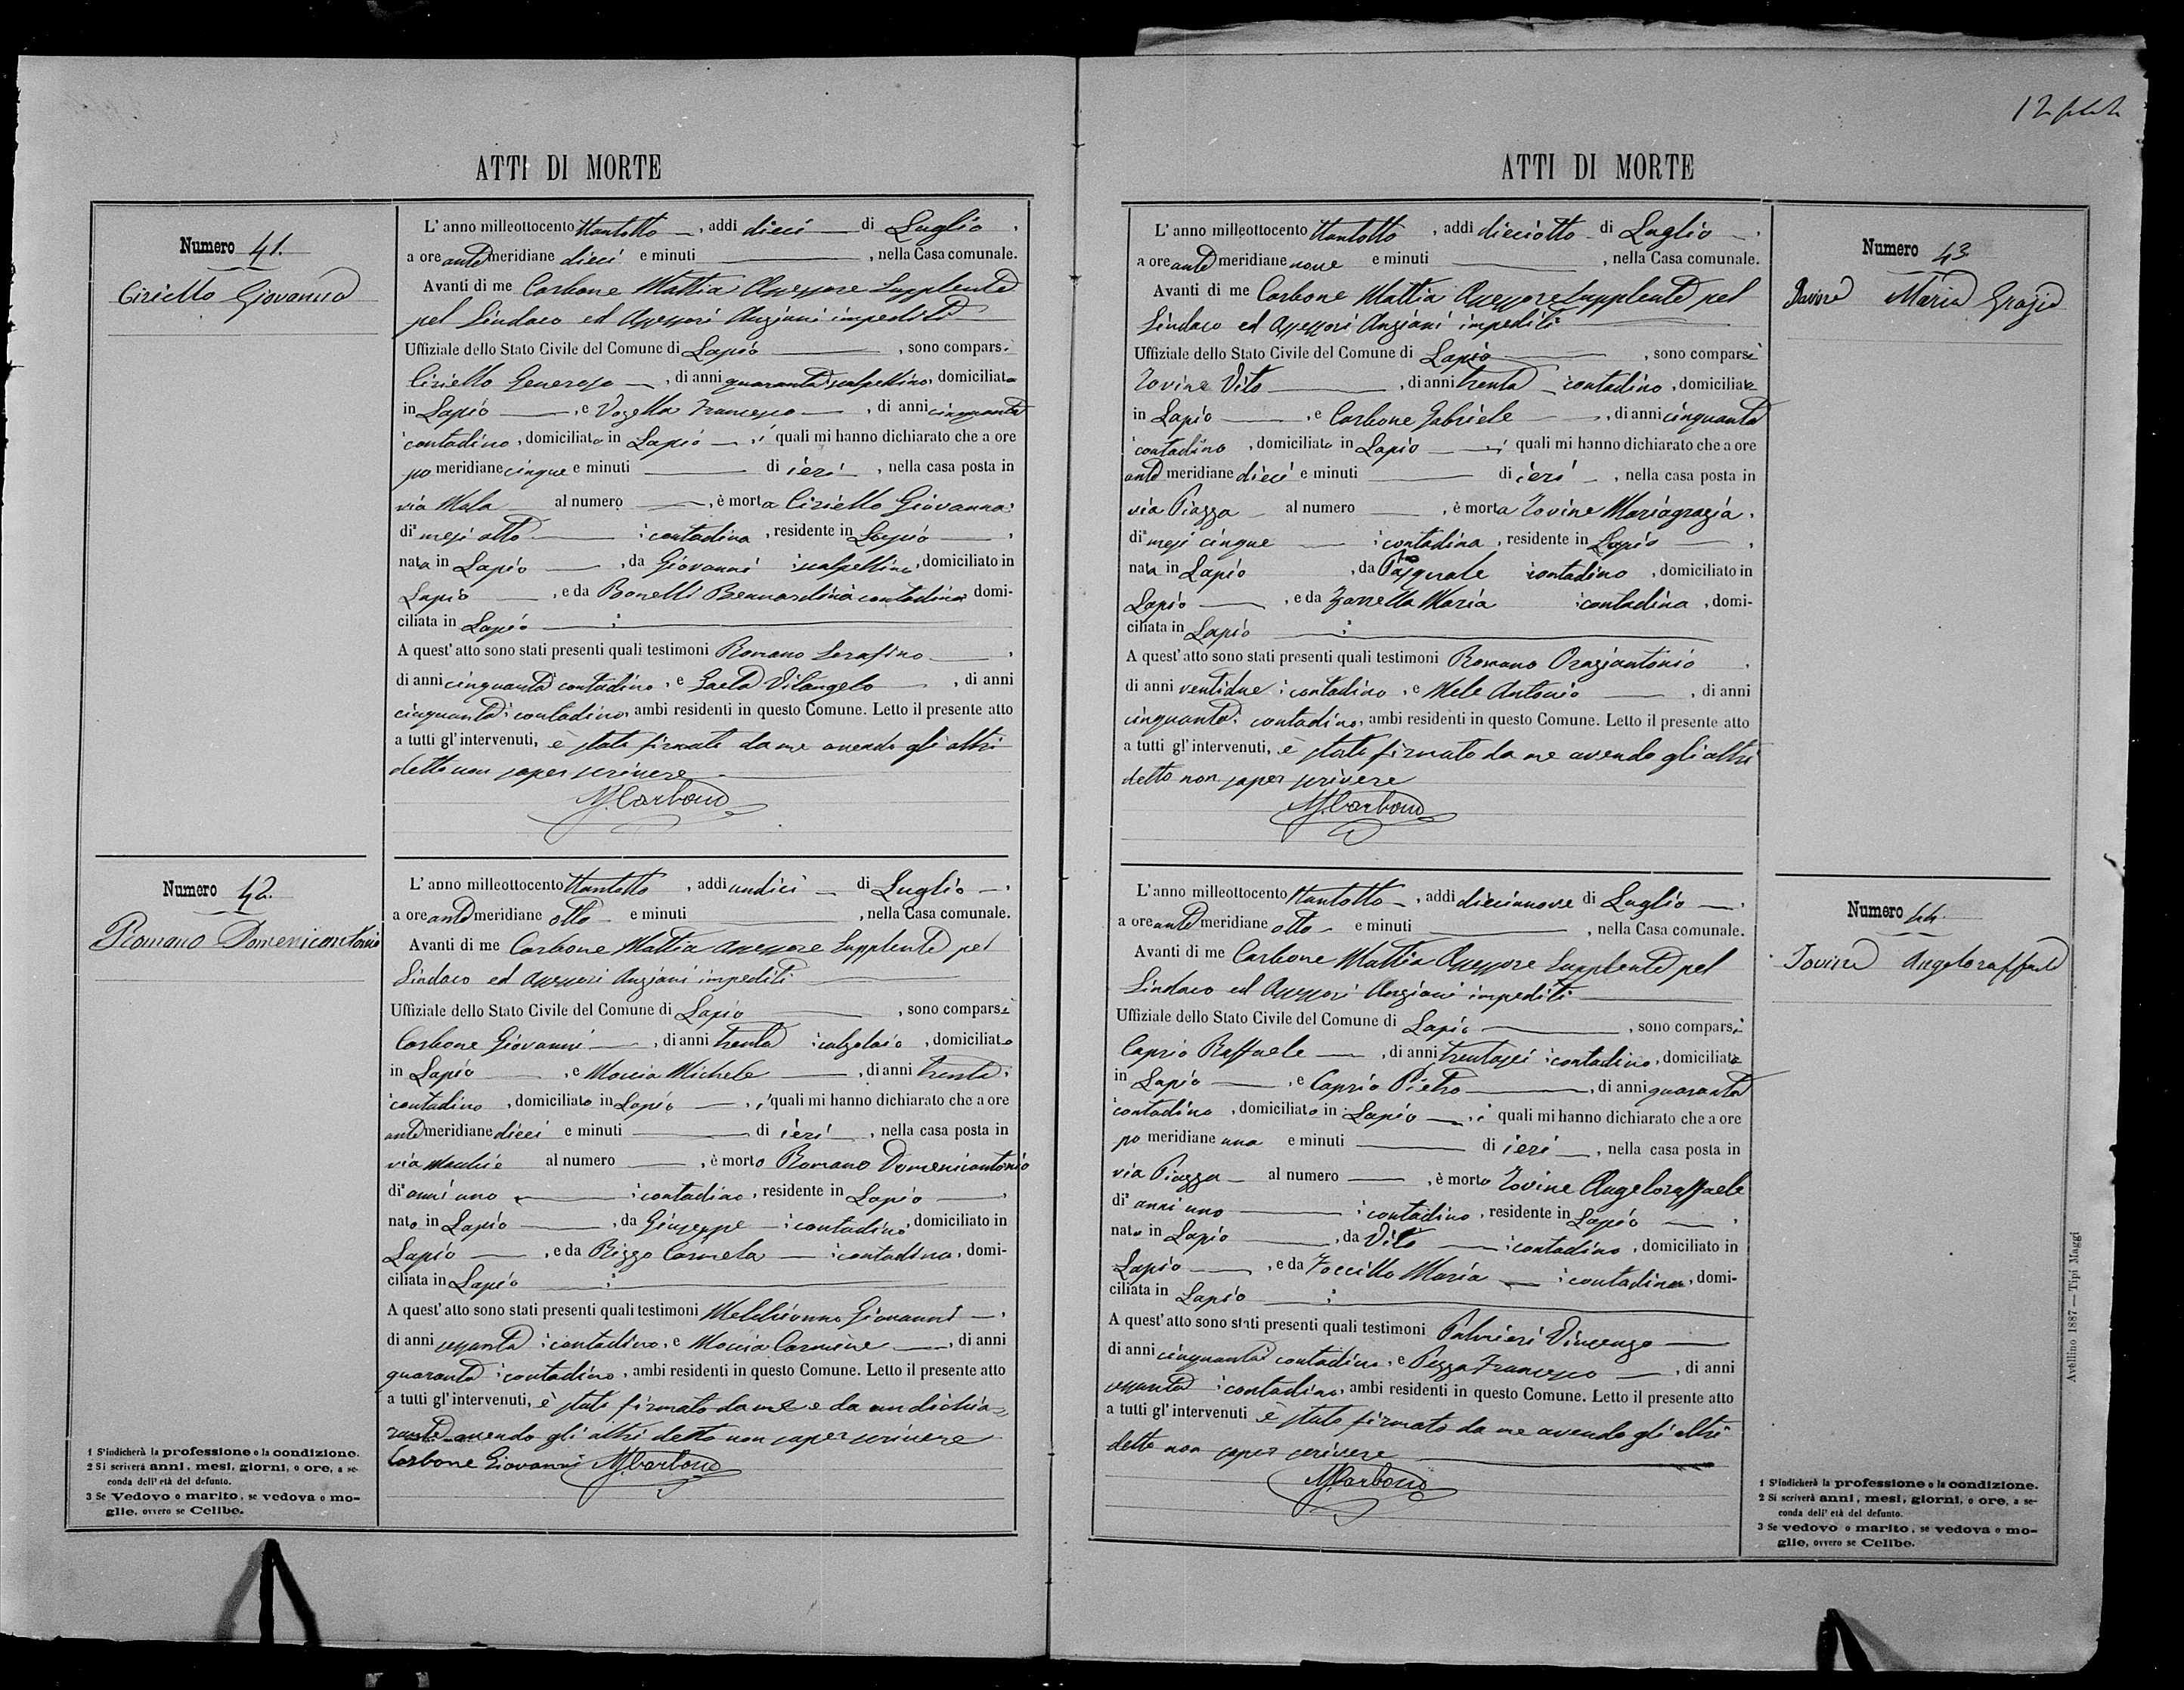 ATTI DI MORTE
Numero 41.
Ciriello Giovanna
L' anno milleottocento ttantotto, addi dieci di Luglio,
a ore ante meridiane dieci e minuti , nella Casa comunale.
Avanti di me Carbone Mattia Assessore Supplente
pel Sindaco ed Assessori Anziani impediti
Uffiziale dello Stato Civile del Comune di Lapio , sono comparsi
Ciriello Generoso , di anni quaranta scalpellino, domiciliato
in Lapio , e Vozella Francesco , di anni cinquanta
contadino, domiciliato in Lapio , i quali mi hanno dichiarato che a ore
po meridiane cinque e minuti di ieri , nella casa posta in
via Mela al numero , è morta Ciriello Giovanna
di² mesi otto contadina, residente in Lapio ,
nata in Lapio , da Giovanni scalpellino, domiciliato in
Lapio , e da Bonelli Bernardina contadina domi-
ciliata in Lapio
A quest' atto sono stati presenti quali testimoni Romano Serafino ,
di anni cinquanta contadino, e Gaeta Vitangelo , di anni
cinquanta contadino, ambi residenti in questo Comune. Letto il presente atto
a tutti gl' intervenuti, è stato firmato da me avendo gli altri
detto non saper scrivere
M. Carbone
Numero 42.
Romano Domenicantonio
L' anno milleottocento ttantotto , addi undici di Luglio ,
a ore ante meridiane otto e minuti , nella Casa comunale.
Avanti di me Carbone Mattia Assessore Supplente pel
Sindaco ed Assessori Anziani impediti
Uffiziale dello Stato Civile del Comune di Lapio , sono comparsi
Carbone Giovanni , di anni trenta calzolaio , domiciliato
in Lapio , e Moccia Michele , di anni trenta
contadino , domiciliato in Lapio , i quali mi hanno dichiarato che a ore
ante meridiane dieci e minuti di ieri , nella casa posta in
via al numero , è morto Romano Domenicantonio
di² anni uno contadino, residente in Lapio ,
nato in Lapio , da Giuseppe contadino domiciliato in
Lapio , e da Rizzo Carmela contadina, domi-
ciliata in Lapio
A quest' atto sono stati presenti quali testimoni Melchionno Giovanni ,
di anni sessanta contadino, e Moccia Carmine , di anni
quaranta contadino, ambi residenti in questo Comune. Letto il presente atto
a tutti gl' intervenuti, è stato firmato da me e da un dichia=
rante avendo gli altri detto non saper scrivere
Carbone Giovanni M. Carbone
1 S'indicherà la professione o la condizione.
2 Si scriverà anni, mesi, giorni, o ore, a se-
conda dell' età del defunto.
3 Se Vedovo o marito, se vedova o mo-
glie, ovvero se Celibe.
ATTI DI MORTE
L' anno milleottocento ttantotto , addi dieciotto di Luglio ,
a ore ante meridiane nove e minuti , nella Casa comunale.
Avanti di me Carbone Mattia Assessore Supplente pel
Sindaco ed Assessori Anziani impediti
Uffiziale dello Stato Civile del Comune di Lapio , sono comparsi
Iovine Vito , di anni trenta contadino, domiciliato
in Lapio , e Carbone Gabriele , di anni cinquanta
contadino , domiciliato in Lapio , i quali mi hanno dichiarato che a ore
ante meridiane dieci e minuti di ieri , nella casa posta in
via Piazza al numero , è morta Iovine Mariagrazia,
di² mesi cinque contadina, residente in Lapio ,
nata in Lapio , da Pasquale contadino , domiciliato in
Lapio , e da Zarrella Maria contadina , domi-
ciliata in Lapio
A quest' atto sono stati presenti quali testimoni Romano Oraziantonio ,
di anni ventidue contadino , e Mele Antonio , di anni
cinquanta contadino, ambi residenti in questo Comune. Letto il presente atto
a tutti gl' intervenuti, è stato firmato da me avendo gli altri
detto non saper scrivere
M. Carbone
Numero 43
Iovine Maria Grazia
L' anno milleottocento ttantotto , addi diecinnove di Luglio ,
a ore ante meridiane otto e minuti , nella Casa comunale.
Avanti di me Carbone Mattia Assessore Supplente pel
Sindaco ed Assessori Anziani impediti
Uffiziale dello Stato Civile del Comune di Lapio , sono comparsi
Caprio Raffaele , di anni trentasei contadino, domiciliato
in Lapio , e Caprio Pietro , di anni quaranta
contadino , domiciliato in Lapio , i quali mi hanno dichiarato che a ore
po meridiane una e minuti di ieri , nella casa posta in
via Piazza al numero , è morto Iovine Angeloraffaele
di² anni uno contadino, residente in Lapio ,
nato in Lapio , da Vito contadino , domiciliato in
Lapio , e da Maria contadina, domi-
ciliata in Lapio
A quest' atto sono stati presenti quali testimoni Palmieri Vincenzo
di anni cinquanta contadino, e Pezza Francesco , di anni
sessanta contadino, ambi residenti in questo Comune. Letto il presente atto
a tutti gl' intervenuti è stato firmato da me avendo gli altri
detto non saper scrivere
M. Carbone
Numero 44.
Iovine Angeloraffaele
1 S'indicherà la professione o la condizione.
2 Si scriverà anni, mesi, giorni, o ore, a se-
conda dell' età del defunto.
3 Se vedovo o marito, se vedova o mo-
glie, ovvero se Celibe.
Avellino 1887 — Tipi Maggi